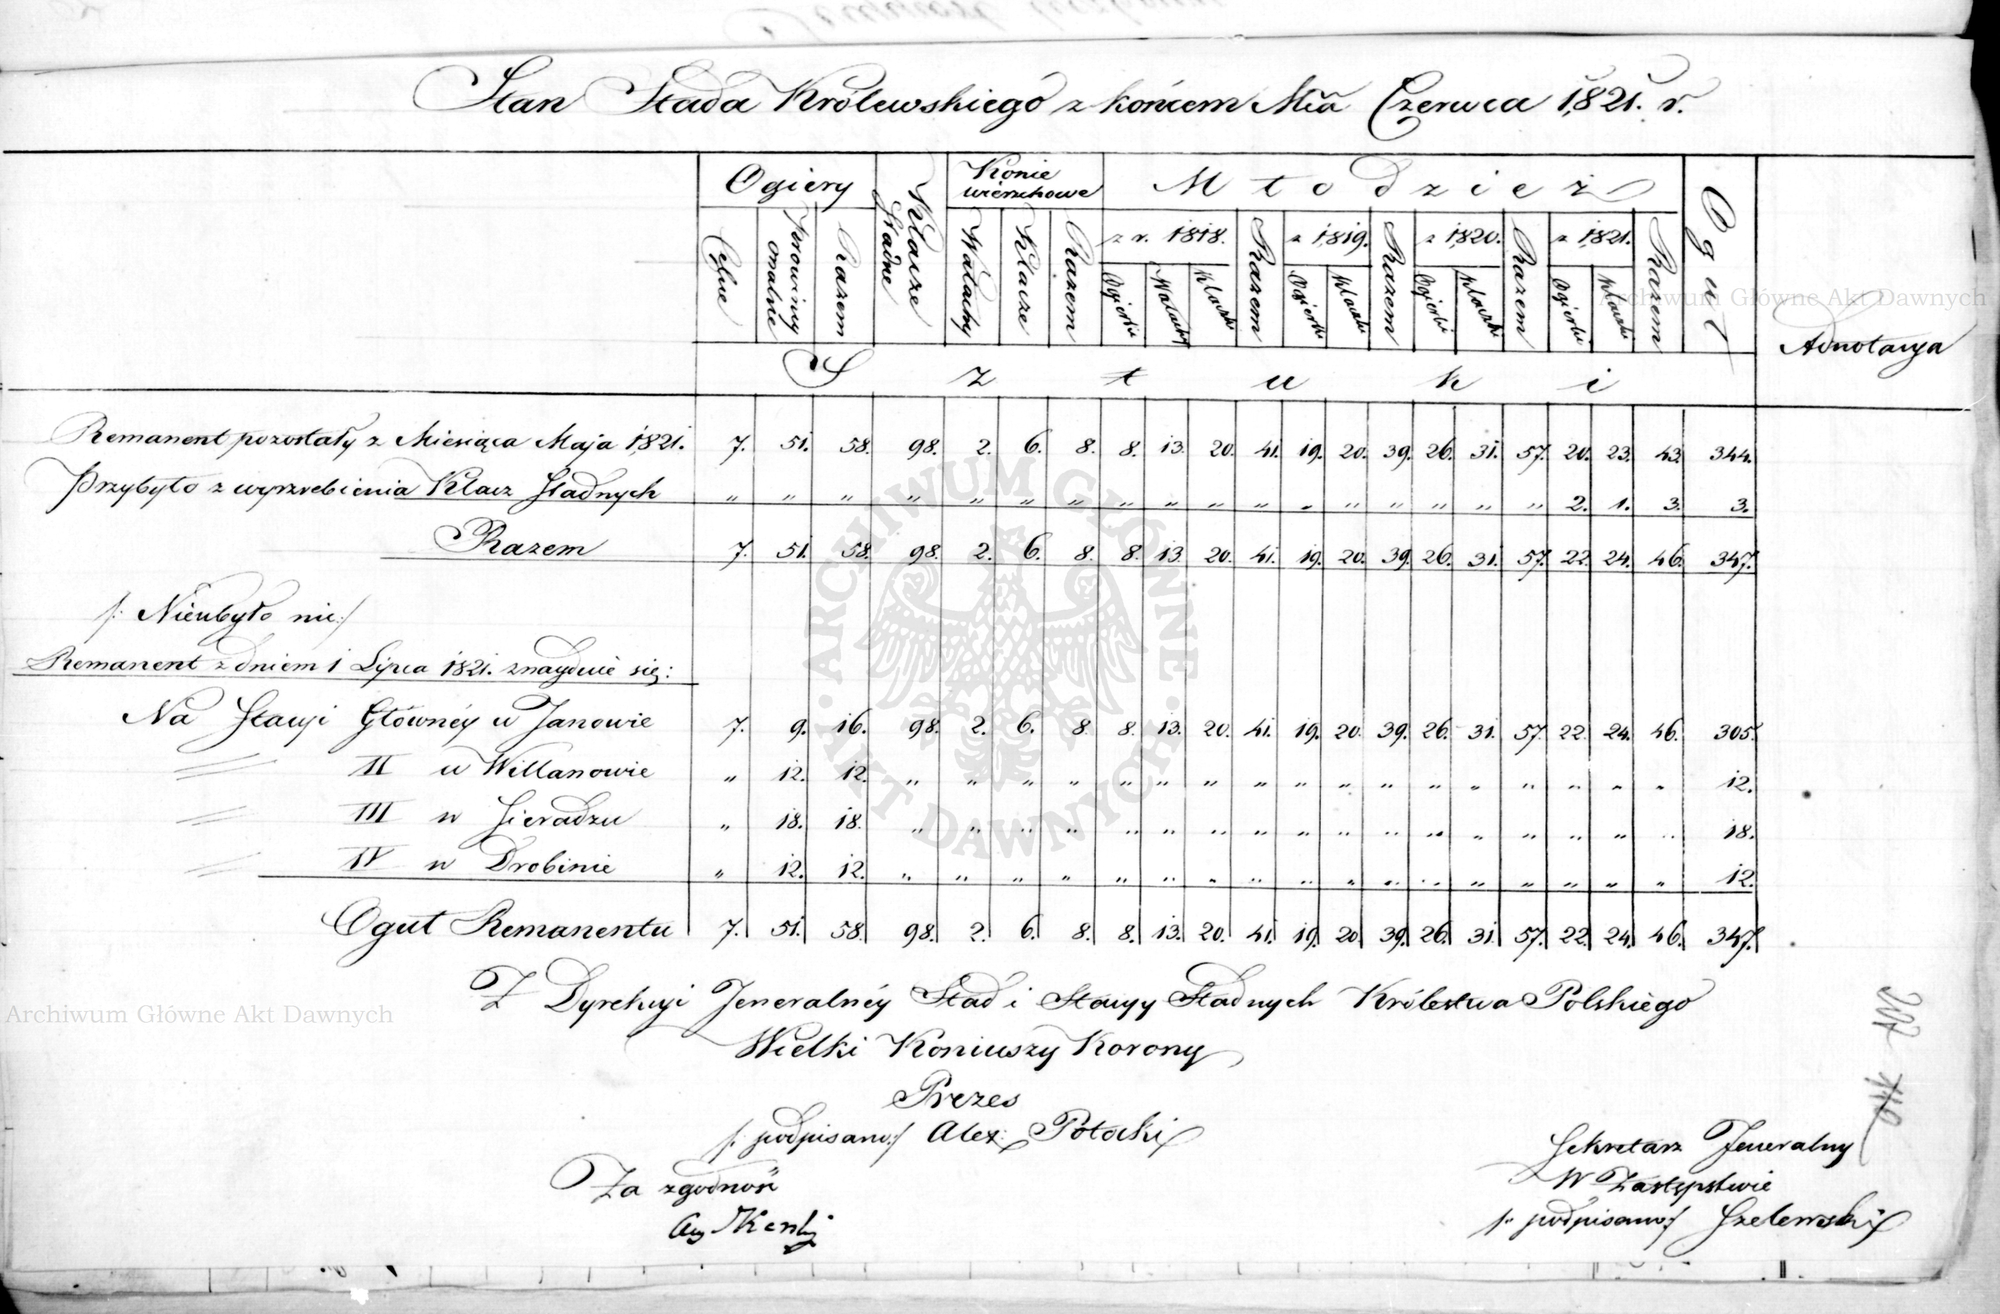 Stan Stada Królewskiego z końcem Mca Czerwca 1821. r.
Ogiery Klacze Stadne Konie wierzchowe Młodzież Oguł Adnotacya
z r. 1818. z 1819. z 1820. z 1821.
Celne Prowincyonalne Razem Wałachy Klacze Razem Ogierki Wałachy Klaczki Razem Ogierki Klaczki Razem Ogierki Klaczki Razem Ogierki Klaczki Razem
Sztuki
Remanent pozostały z Miesiąca Maja 1821. 7. 51. 58. 98. 2. 6. 8. 8. 13. 20. 41. 19. 20. 39. 26. 31. 57. 20. 23. 43. 344.
Przybyło z wyzrebienia Klacz Stadnych „ „ „ „ „ „ „ „ „ „ „ „ „ „ „ „ „ 2. 1. 3. 3.
Razem 7. 51. 58. 98. 2. 6. 8. 8. 13. 20. 41. 19. 20. 39. 26. 31. 57. 22. 24. 46. 347.
/: Nieubyło nic :/
Remanent z dniem 1 Lipca 1821. znayduie się:
Na Stacyi Główney w Janowie 7. 9. 16. 98. 2. 6. 8. 8. 13. 20. 41. 19. 20. 39. 26. 31. 57. 22. 24. 46. 305.
II w Willanowie „ 12. 12. „ „ „ „ „ „ „ „ „ „ „ „ „ „ „ „ „ 12.
III w Sieradzu „ 18. 18. „ „ „ „ „ „ „ „ „ „ „ „ „ „ „ „ „ 18.
IV w Drobinie „ 12. 12. „ „ „ „ „ „ „ „ „ „ „ „ „ „ „ „ „ 12.
Oguł Remanentu 7. 51. 58. 98. 2. 6. 8. 8. 13. 20. 41. 19. 20. 39. 26. 31. 57. 22. 24. 46. 347.
Z Dyrekcyi Jeneralnéy Stad i Stacyy Stadnych Królestwa Polskiego
Wielki Koniuszy Korony
Prezes
/: podpisano :/ Alex: Potocki
Za zgodność
Sekretarz Jeneralny
W Zastępstwie
/: podpisano :/ Szelewski
Archiwum Główne Akt Dawnych
Archiwum Główne Akt Dawnych
ARCHIWUM GŁÓWNE · AKT DAWNYCH ·